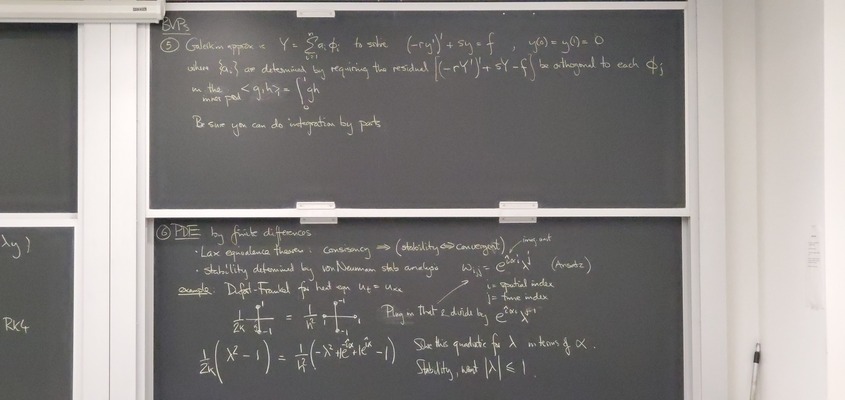 BVPs
⑤ Galerkin approx: Y = Σ_{i=1}^{n} a_i φ_i to solve (-ry')' + sy = f , y(0) = y(1) = 0
where {a_i} are determined by requiring the residual [(-rY')' + sY - f] be orthogonal to each φ_j
in the inner prod <g,h> = ∫_0^1 gh
Be sure you can do integration by parts
⑥ PDE by finite differences
· Lax equivalence theorem: consistency ⇒ (stability ⇔ convergent)
imag. unit
· stability determined by von Neumann stab analysis w_{i,j} = e^{îαi} λ^j (Ansatz)
i = spatial index
j = time index
example: Dufort-Frankel for heat eqn u_t = u_xx
Plug in that & divide by e^{îαi} λ^{j-1}
1/2k 1 -1 = 1/h² 1 -1 1 -1
1/2k (λ² - 1) = 1/h² (-λ² + λe^{-îα} + λe^{îα} - 1)
Solve this quadratic for λ in terms of α.
Stability, want |λ| ≤ 1.
λy)
RK4